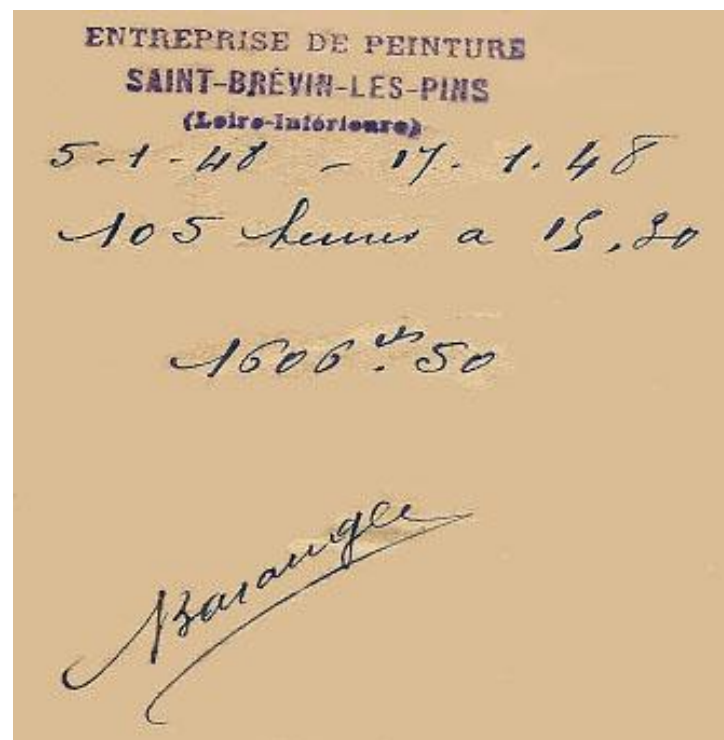 ENTREPRISE DE PEINTURE
SAINT-BRÉVIN-LES-PINS
(Loire-Inférieure)
5-1-48 - 17.1.48
105 heures a 15,30
1606 frs 50
Baranger